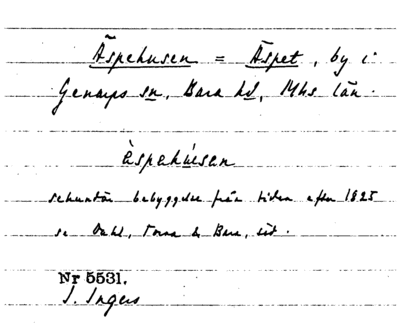 Äspehusen = Äspet, by i
Genarps sn, Bara hd, Mhs län.
èspehùsen
sekundär bebyggelse från tiden efter 1825
se Dahl, Torna o Bara, sid.
Nr 5531.
I. Ingers